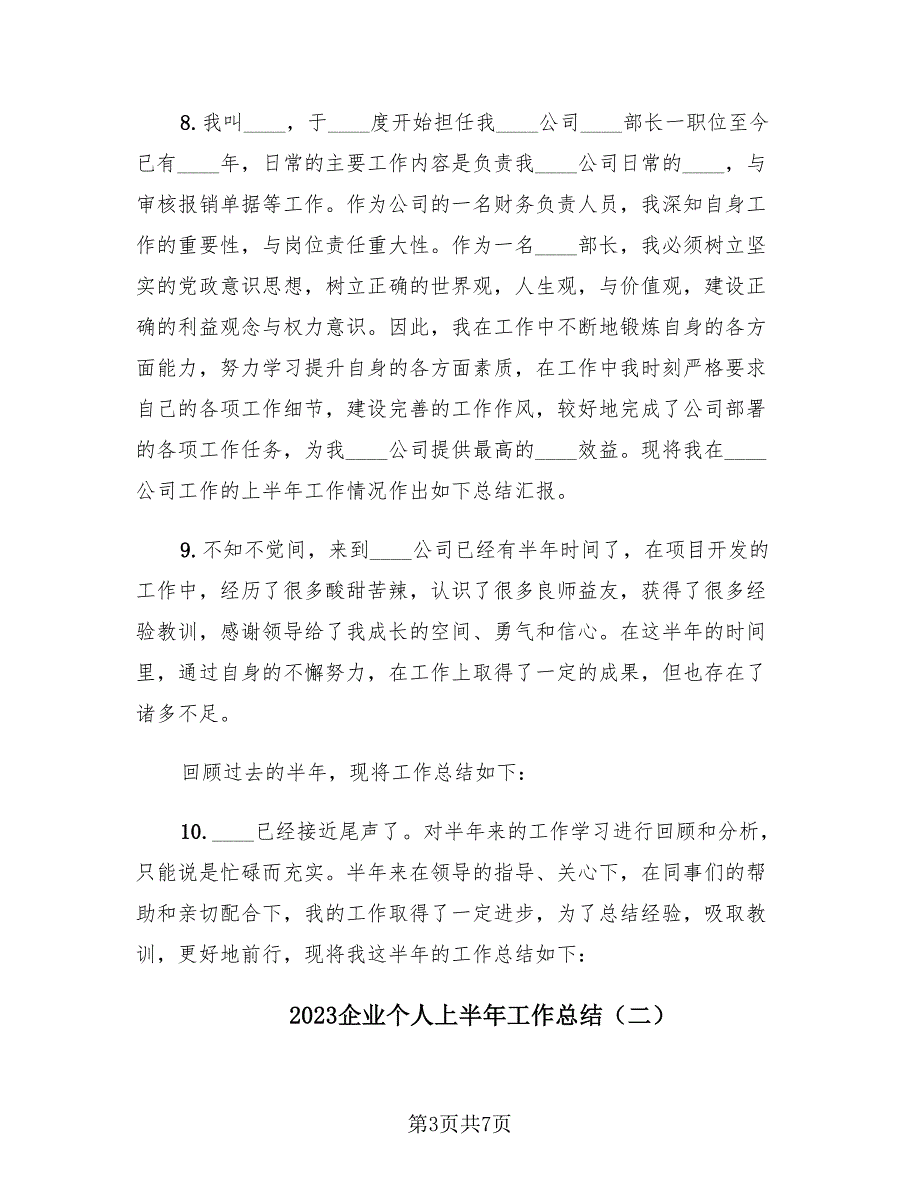 8. 我叫____，于____度开始担任我____公司____部长一职位至今
已有____年，日常的主要工作内容是负责我____公司日常的____，与
审核报销单据等工作。作为公司的一名财务负责人员，我深知自身工
作的重要性，与岗位责任重大性。作为一名____部长，我必须树立坚
实的党政意识思想，树立正确的世界观，人生观，与价值观，建设正
确的利益观念与权力意识。因此，我在工作中不断地锻炼自身的各方
面能力，努力学习提升自身的各方面素质，在工作中我时刻严格要求
自己的各项工作细节，建设完善的工作作风，较好地完成了公司部署
的各项工作任务，为我____公司提供最高的____效益。现将我在____
公司工作的上半年工作情况作出如下总结汇报。
9. 不知不觉间，来到____公司已经有半年时间了，在项目开发的
工作中，经历了很多酸甜苦辣，认识了很多良师益友，获得了很多经
验教训，感谢领导给了我成长的空间、勇气和信心。在这半年的时间
里，通过自身的不懈努力，在工作上取得了一定的成果，但也存在了
诸多不足。
回顾过去的半年，现将工作总结如下：
10. ____已经接近尾声了。对半年来的工作学习进行回顾和分析，
只能说是忙碌而充实。半年来在领导的指导、关心下，在同事们的帮
助和亲切配合下，我的工作取得了一定进步，为了总结经验，吸取教
训，更好地前行，现将我这半年的工作总结如下：
2023企业个人上半年工作总结（二）
第3页共7页